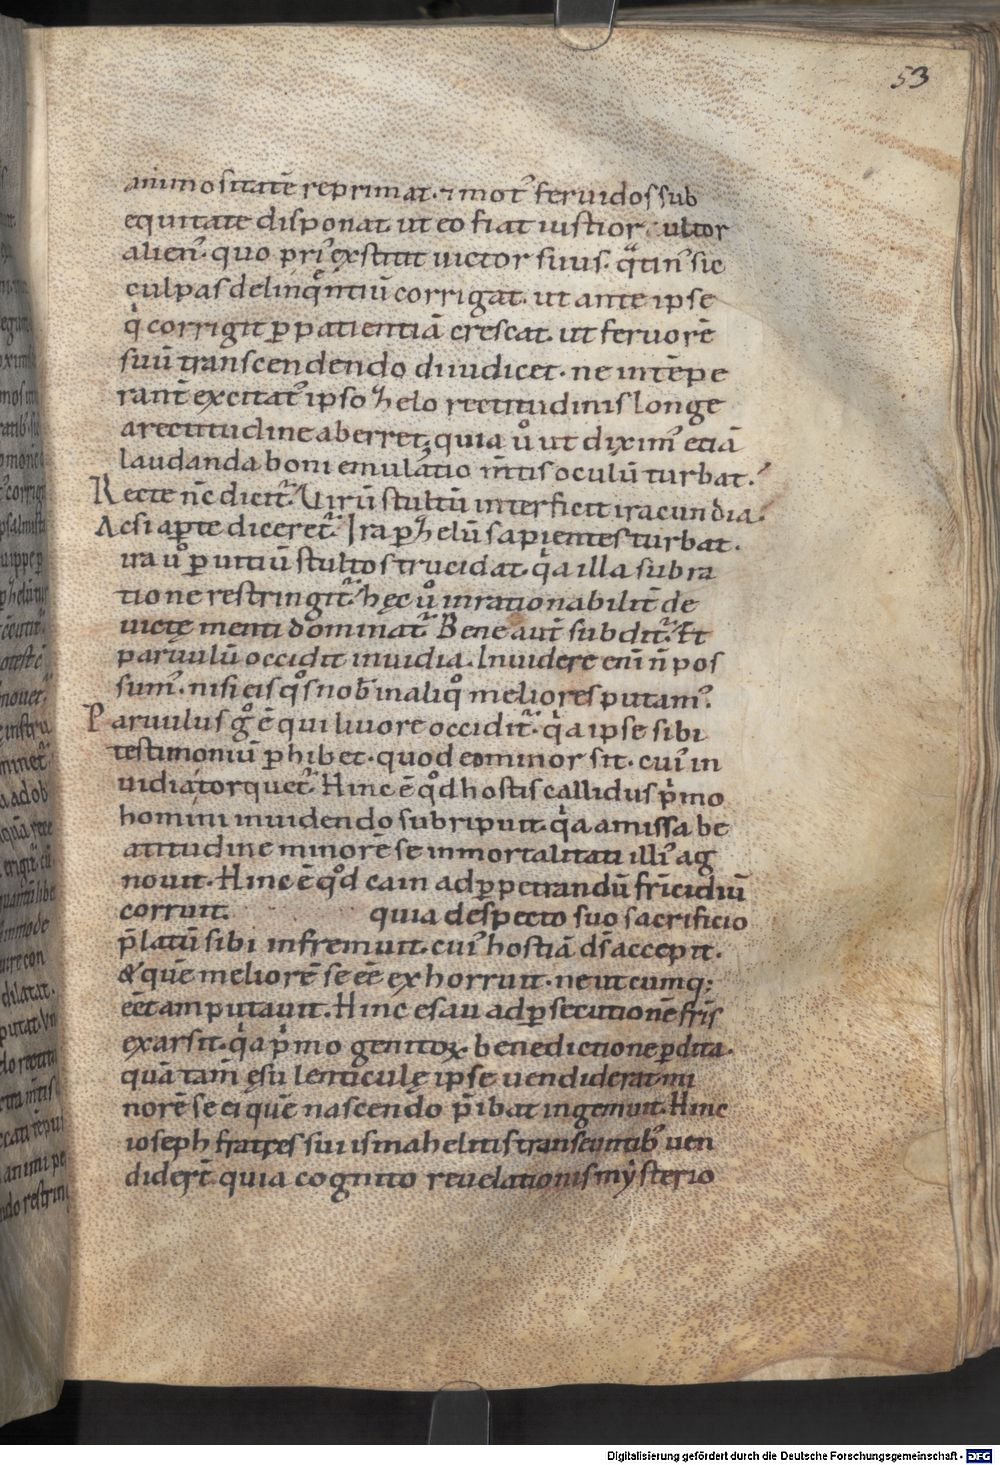 53
animositatē reprimat. ⁊ mot᾽ feruidos sub
equitate disponat. ut eo fiat iustior ultor
alien᾽. quo pri᾽ exstitit uictor suus. qͣtin᾽ sic
culpas delinqͣntiū corrigat. ut ante ipse
qͥ corrigit ꝑ patientiā crescat. ut feruorē
suū transcendendo diiudicet. ne intēpe
rant̄ excitat᾽ ipso zelo rectitudinis longe
a rectitudine aberret; quia uͦ ut dixim᾽ etiā
laudanda boni emulatio m̄tis oculū turbat.
Recte nc̄ dicit᾽. Virū stultū interficit iracundia.
Acsi aꝑte diceret᾽. Ira ꝑ zelū sapientes turbat.
ira uͦ ꝑ uitiū stultos trucidat. qͥa illa sub ra
tione restringit᾽. hęc uͦ inrationabilit̄ de
uictę menti dominat᾽. Bene aut̄ subdit᾽. Et
paruulū occidit inuidia. Inuidere eni᾽ n̄ pos
sum᾽. nisi eis qͦs nob᾽ in aliqͦ meliores putam᾽.
Paruulus gͦ ē qui liuore occidit᾽. qͥa ipse sibi
testimoniū ꝑhibet. quod eo minor sit. cui᾽ in
uidia torquet᾽. Hinc ē qͦd hostis callidus pͥmo
homini inuidendo subripuit. qͥa amissa be
atitudine minorē se inmortalitati illi᾽ ag
nouit. Hinc ē qͦd cain ad ꝑpetrandū fr̄icidiū
corruit. quia despecto suo sacrificio
p̄latū sibi infremuit. cui᾽ hostiā ds̄ accepit.
& quē meliorē se eē exhorruit. ne utcumq;
eēt amputauit. Hinc esau ad ꝑsecutionē fr̄is
exarsit. qͥa pͥmo genitoꝝ benedictione ꝑdita.
quā tam̄ ęsu lenticulę ipse uendiderat mi
norē se ei quē nascendo p̄ibat ingemuit. Hinc
ioseph fratres sui ismahelitis transeuntib᾽ uen
didert̄ quia cognito reuelationis mysterio
Digitalisierung gefördert durch die Deutsche Forschungsgemeinschaft - DFG